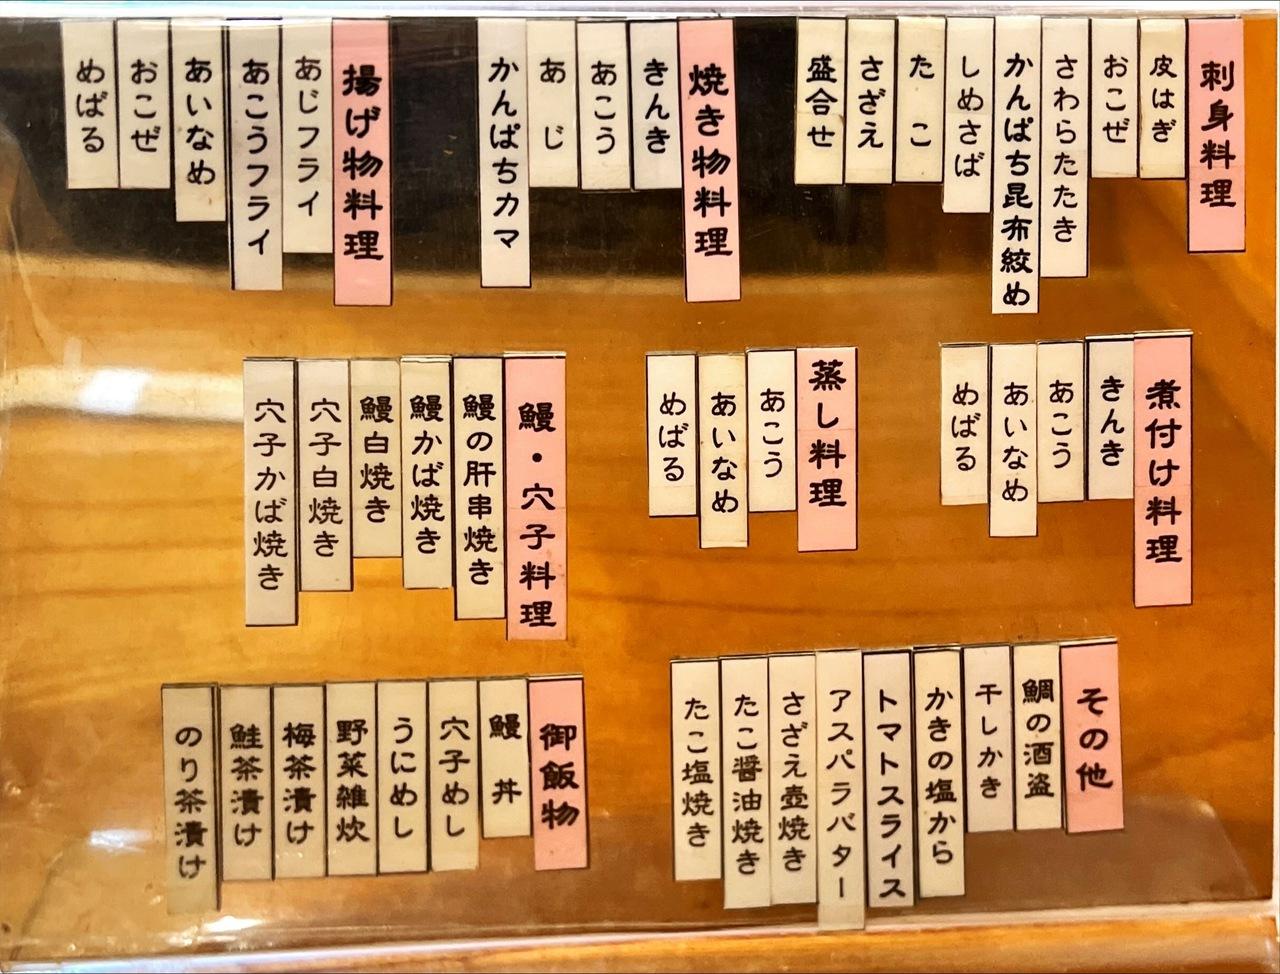 刺身料理
皮はぎ
おこぜ
さわらたたき
かんぱち昆布絞め
しめさば
たこ
さざえ
盛合せ
焼き物料理
きんき
あこう
あじ
かんぱちカマ
揚げ物料理
あじフライ
あこうフライ
あいなめ
おこぜ
めばる
煮付け料理
きんき
あこう
あいなめ
めばる
蒸し料理
あこう
あいなめ
めばる
鰻・穴子料理
鰻の肝串焼き
鰻かば焼き
鰻白焼き
穴子白焼き
穴子かば焼き
その他
鯛の酒盗
干しかき
かきの塩から
トマトスライス
アスパラバター
さざえ壺焼き
たこ醤油焼き
たこ塩焼き
御飯物
鰻丼
穴子めし
うにめし
野菜雑炊
梅茶漬け
鮭茶漬け
のり茶漬け